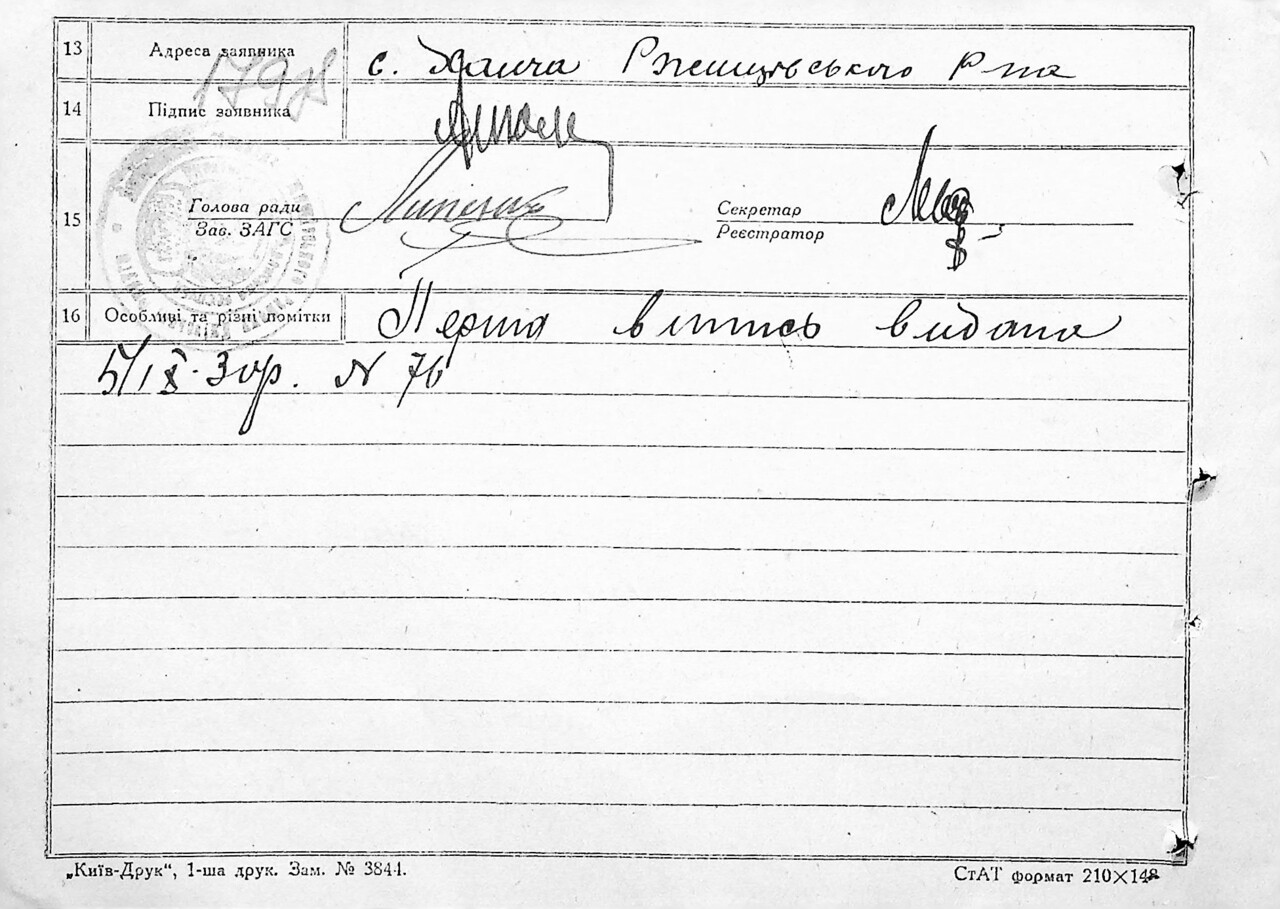 13 Адреса заявника с. Ханча Ржищівського р-на
179
14 Підпис заявника
15 Голова ради
Зав. ЗАГС
Секретар
Реєстратор
16 Особливі та різні помітки Перша випись видана
5/IX-30р. N 76
„Київ-Друк“, 1-ша друк. Зам. № 3844.
СтАТ формат 210×148